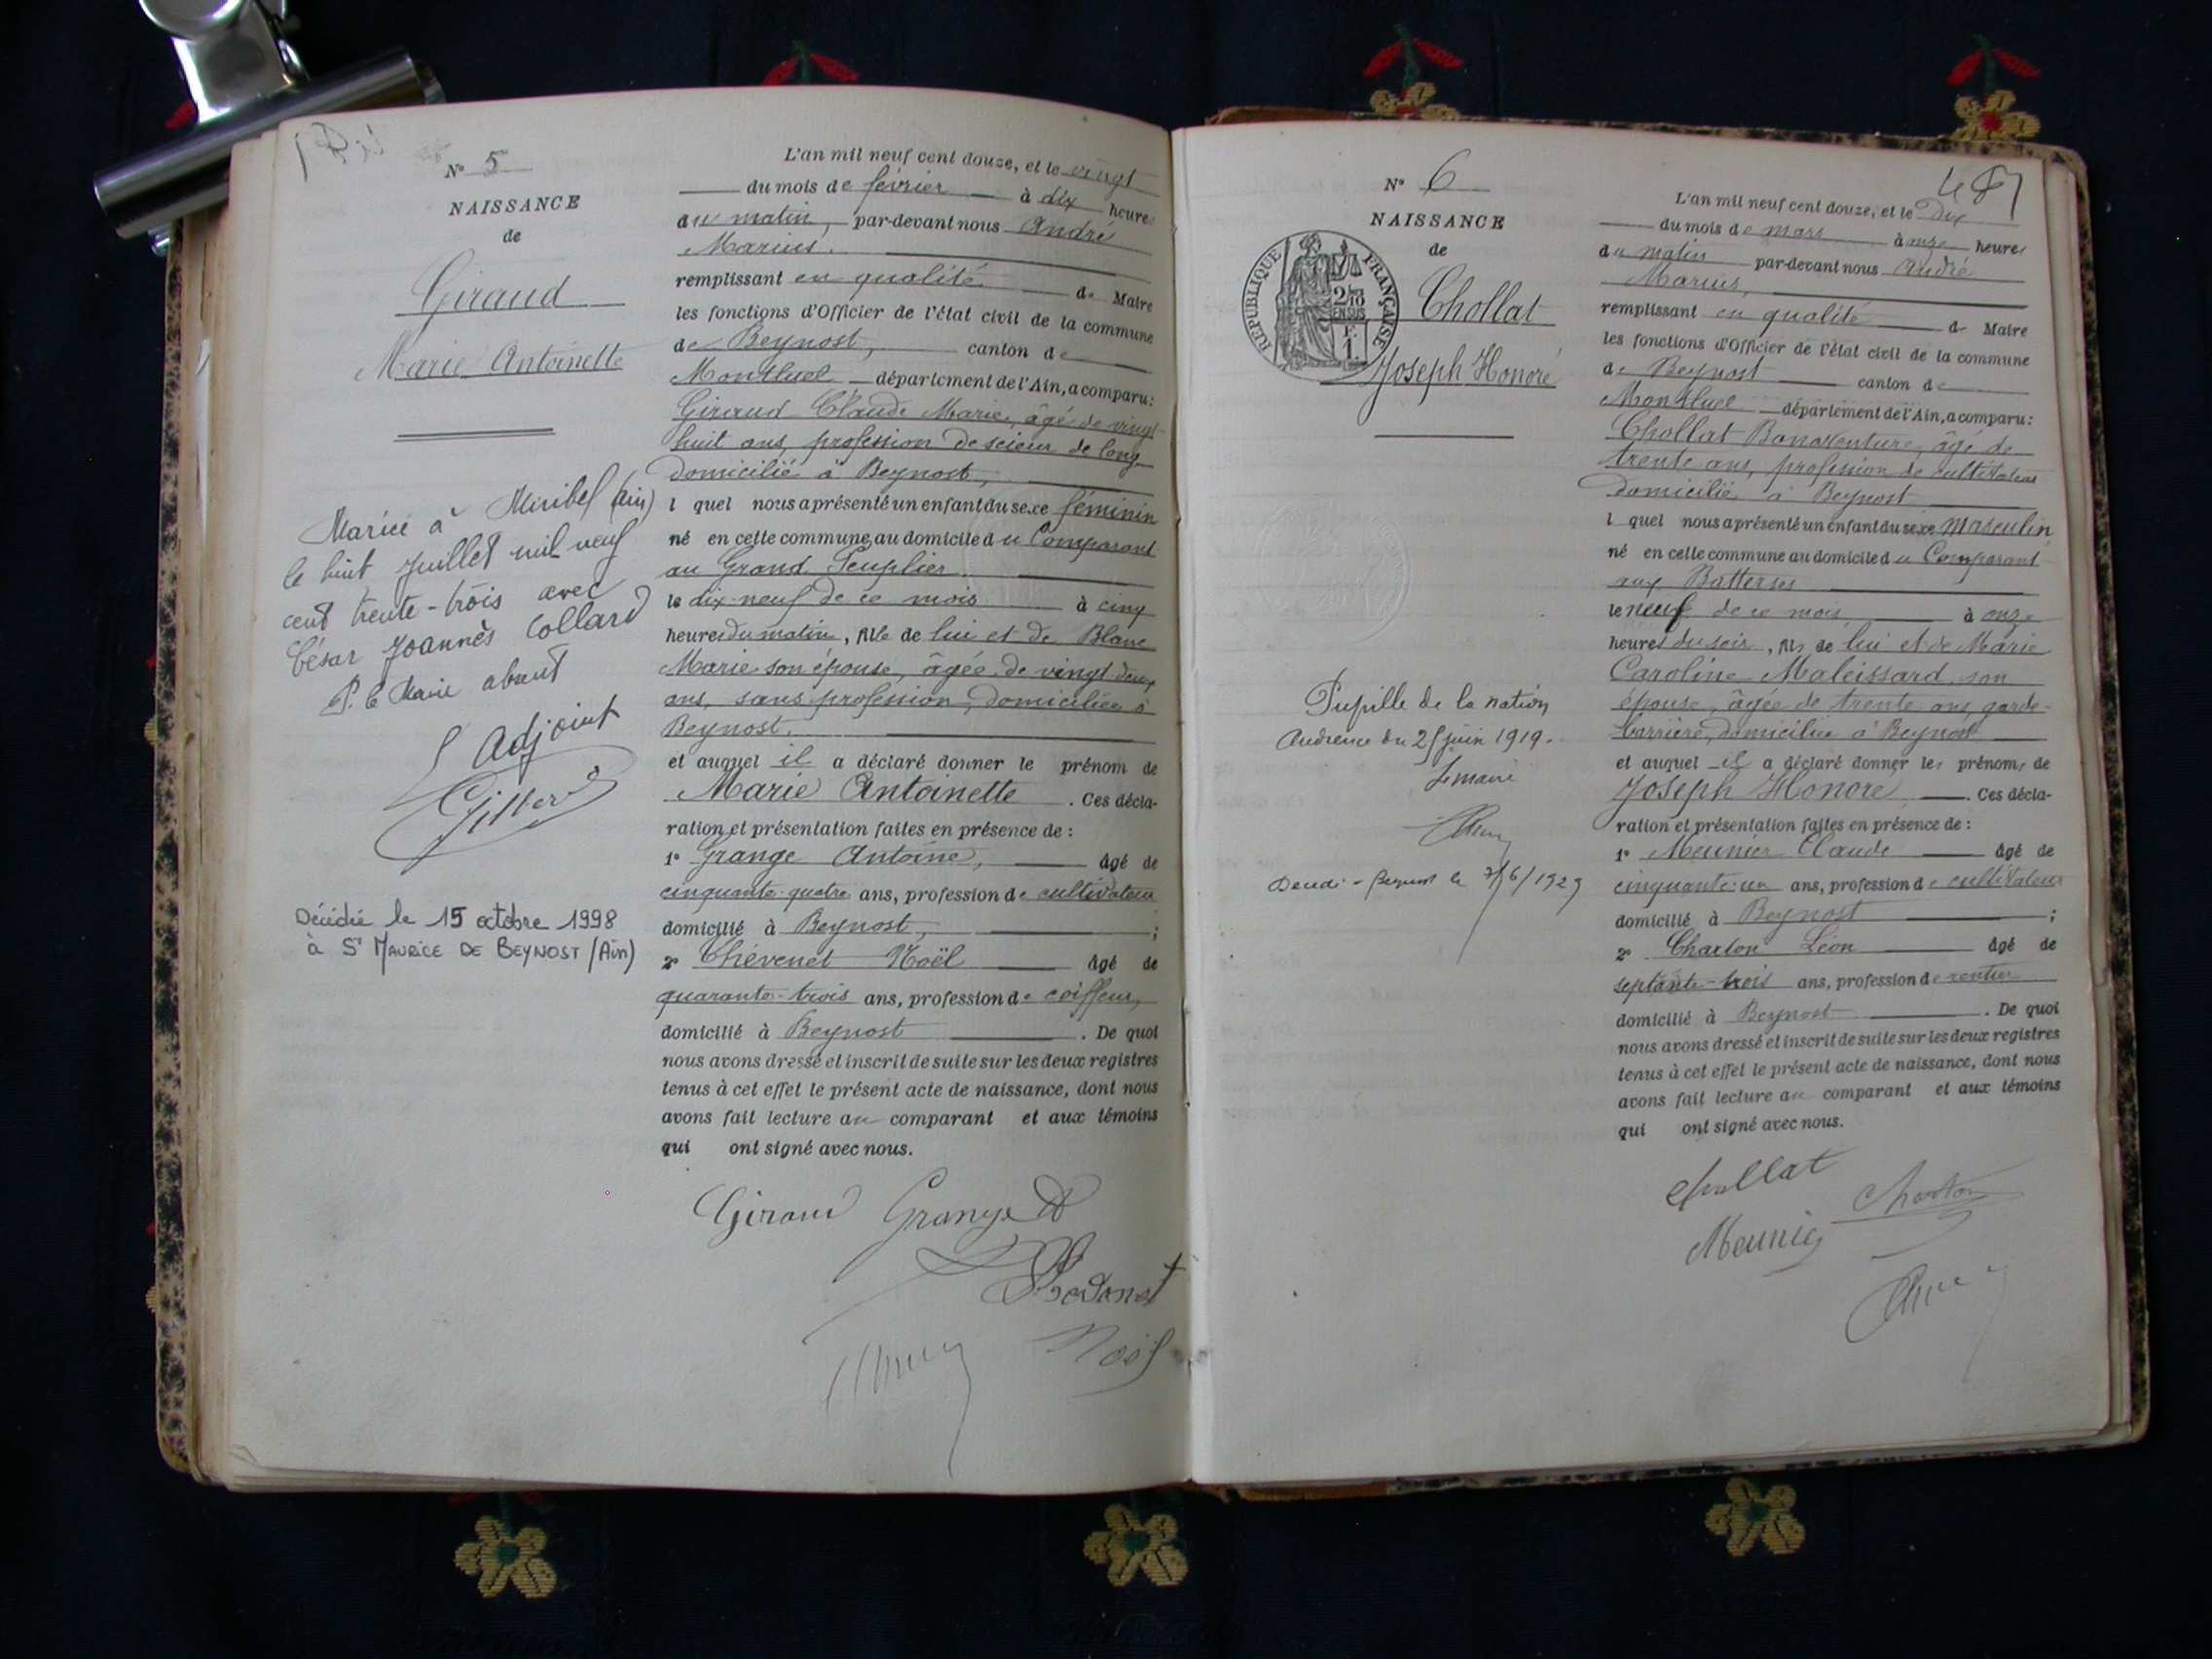 N° 5
NAISSANCE
de
Giraud
Marie Antoinette
Mariée à Miribel (Ain)
le huit Juillet mil neuf
cent trente-trois avec
César Joannès Collard
P. le Maire absent
L'adjoint
Décédée le 15 octobre 1998
à St MAURICE DE BEYNOST (Ain)
L'an mil neuf cent douze, et le vingt
du mois de février à dix heures
du matin, par-devant nous André
Marius.
remplissant en qualité de Maire
les fonctions d'Officier de l'état civil de la commune
de Beynost, canton de
Montluel département de l'Ain, a comparu:
Giraud Claude Marie, âgé de vingt
huit ans, profession de scieur de long
domicilié à Beynost,
l quel nous a présenté un enfant du sexe féminin
né en cette commune au domicile du Comparant
au Grand Peuplier.
le dix-neuf de ce mois à cinq
heures du matin, fille de lui et de Blanc
Marie son épouse, âgée de vingt deux
ans, sans profession, domiciliée à
Beynost.
et auquel il a déclaré donner le prénom de
Marie Antoinette. Ces décla-
ration et présentation faites en présence de :
1° Grange Antoine, âgé de
cinquante-quatre ans, profession de cultivateur
domicilié à Beynost, ;
2° Chévenet Noël âgé de
quarante-trois ans, profession de coiffeur,
domicilié à Beynost. De quoi
nous avons dressé et inscrit de suite sur les deux registres
tenus à cet effet le présent acte de naissance, dont nous
avons fait lecture au comparant et aux témoins
qui ont signé avec nous.
Giraud Grange
Noël
N° 6
NAISSANCE
de
RÉPUBLIQUE FRANÇAISE
2/10 EN SUS
F. 1.
Chollat
Joseph Honoré
Pupille de la nation
Audience du 25 juin 1919.
Le maire
L'an mil neuf cent douze, et le Dix
du mois de mars à onze heures
du matin par-devant nous André
Marius,
remplissant en qualité de Maire
les fonctions d'Officier de l'état civil de la commune
de Beynost canton de
Montluel département de l'Ain, a comparu:
Chollat Bonaventure, âgé de
trente ans, profession de cultivateur
domicilié à Beynost
l quel nous a présenté un enfant du sexe Masculin
né en cette commune au domicile du Comparant
aux Batterses
le neuf de ce mois à onze
heures du soir, fils de lui et de Marie
Caroline Maleissard son
épouse, âgée de trente ans, garde-
barrière, domiciliée à Beynost
et auquel il a déclaré donner les prénoms de
Joseph Honoré. Ces décla-
ration et présentation faites en présence de :
1° Meunier Claude âgé de
cinquante-un ans, profession de cultivateur
domicilié à Beynost ;
2° Charton Léon âgé de
septante-trois ans, profession de rentier
domicilié à Beynost. De quoi
nous avons dressé et inscrit de suite sur les deux registres
tenus à cet effet le présent acte de naissance, dont nous
avons fait lecture au comparant et aux témoins
qui ont signé avec nous.
Chollat
Charton
Meunier